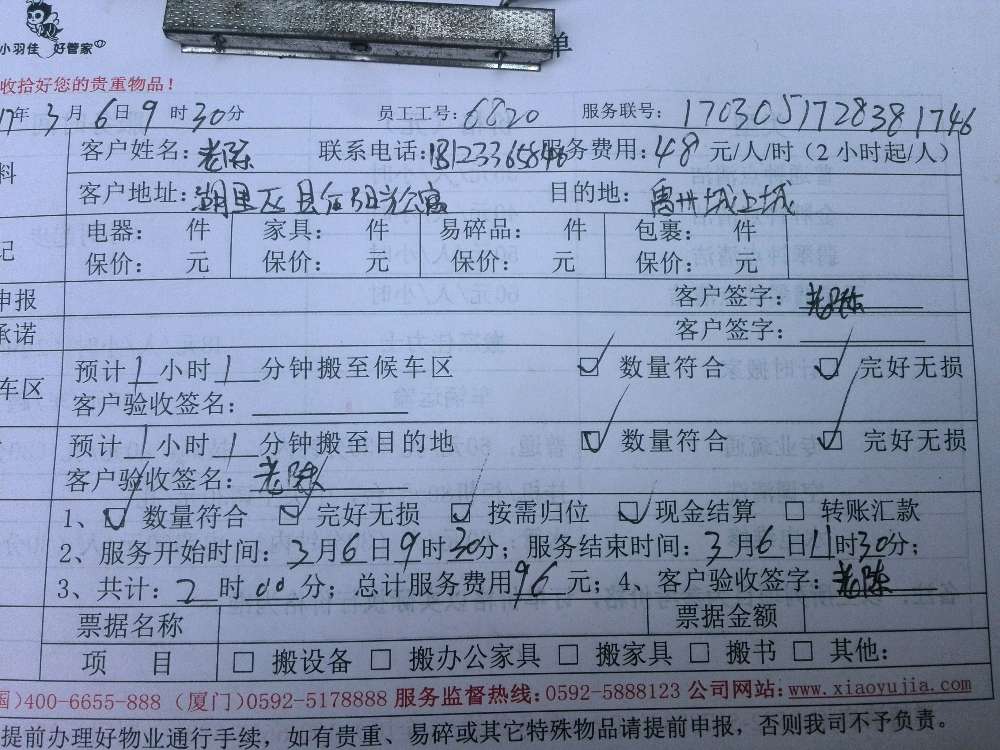 单
小羽佳 好管家
收拾好您的贵重物品！
17年3月6日9时30分 员工工号：6820 服务联号：170305172838 1746
料 客户姓名：老陈 联系电话： 服务费用：48元/人/时（2小时起/人）
客户地址：湖里区 公寓 目的地：禹州城上城
记 电器： 件 家具： 件 易碎品： 件 包裹： 件
保价： 元 保价： 元 保价： 元 保价： 元
申报 客户签字：老陈
承诺 客户签字：
车区 预计1小时1分钟搬至候车区 数量符合 完好无损
客户验收签名：
预计1小时1分钟搬至目的地 数量符合 完好无损
客户验收签名：老陈
1、数量符合 完好无损 按需归位 现金结算 转账汇款
2、服务开始时间：3月6日9时30分；服务结束时间：3月6日11时30分；
3、共计：2时00分；总计服务费用96元；4、客户验收签字：老陈
票据名称 票据金额
项 目 搬设备 搬办公家具 搬家具 搬书 其他：
国）400-6655-888（厦门）0592-5178888 服务监督热线：0592-5888123 公司网站：www.xiaoyujia.com
提前办理好物业通行手续，如有贵重、易碎或其它特殊物品请提前申报，否则我司不予负责。